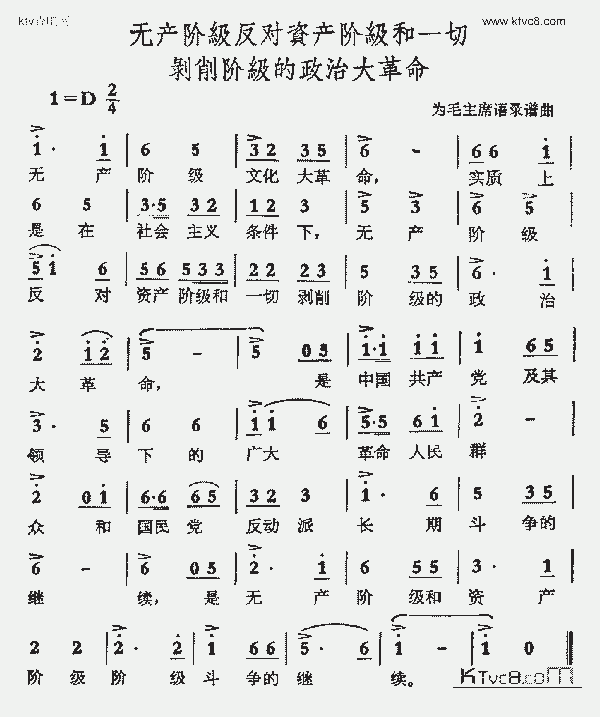 www.ktvc8.com
无产阶級反对資产阶級和一切
剝削阶級的政治大革命
1=D 2/4
为毛主席语录谱曲
1· 1 | 6 5 | 32 35 | 6 - | 66 1 |
无 产 阶 级 文化 大革 命, 实质 上
6 5 | 3·5 32 | 12 3 | 5 3 | 6 5 |
是 在 社会 主义 条件 下, 无 产 阶 级
51 6 | 56 533 | 22 23 | 5 35 | 6· 1 |
反 对 资产 阶级和 一切 剥削 阶 级的 政 治
2 12 | 5 - | 5 05 | 1·1 11 | 1 65 |
大 革 命, 是 中国 共产 党 及其
3· 5 | 6 6 | 11 6 | 5·5 61 | 2 - |
领 导 下 的 广大 革命 人民 群
2 01 | 6·6 65 | 32 3 | 1· 6 | 5 35 |
众 和 国民 党 反动 派 长 期 斗 争的
6 - | 6 05 | 2· 1 | 6 05 | 3· 1 |
继 续, 是 无 产 阶 级和 资 产
2 22 | 2· 2 | 1 66 | 5· 6 | 1 - | 1 0 ‖
阶 级 阶 级 斗 争的 继 续。
KTvc8.com